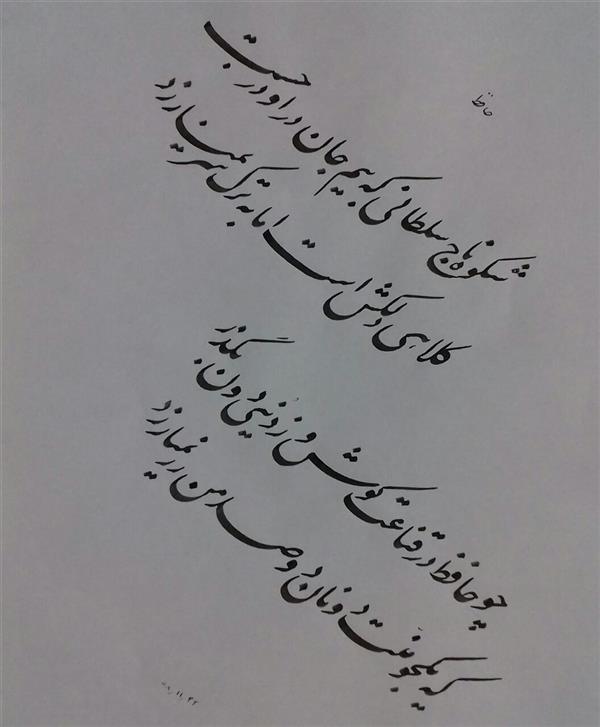 حافظ
شکوه تاج سلطانی که بیم جان در او درجست
کلاهی دلکش است اما به ترک سر نمیارزد
چو حافظ در قناعت کوش و ز دنیی دون بگذر
که یکجو منت دونان دو صد من زر نمیارزد